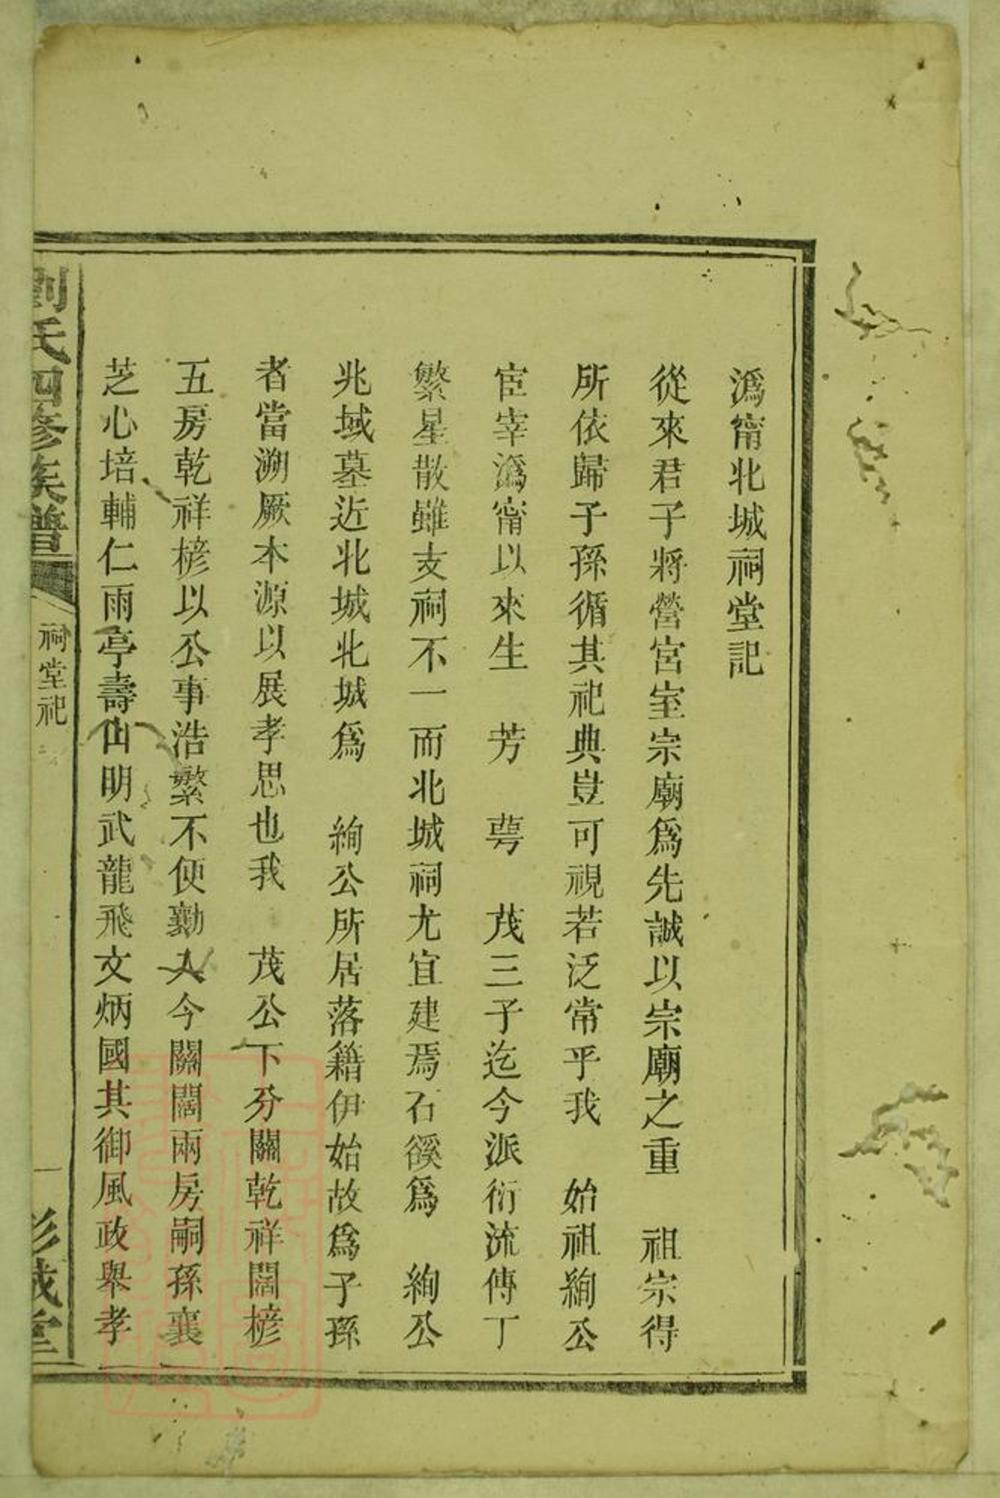 溈甯北城祠堂記
從來君子將營宮室宗廟爲先誠以宗廟之重　祖宗得
所依歸子孫循其祀典豈可視若泛常乎我　始祖絢公
宦宰溈甯以來生　芳　蕚　茂三子迄今派衍流傳丁
繁星散雖支祠不一而北城祠尤宜建焉石篠爲　絢公
兆域墓近北城北城爲　絢公所居落籍伊始故爲子孫
者當溯厥本源以展孝思也我　茂公下分關乾祥闊榜
五房乾祥榜以公事浩繁不便勷入今關闊兩房嗣孫襄
芝心培輔仁雨亭壽山明武龍飛文炳國其御風政舉孝
劉氏四修族譜
祠堂祀
一
彭城堂